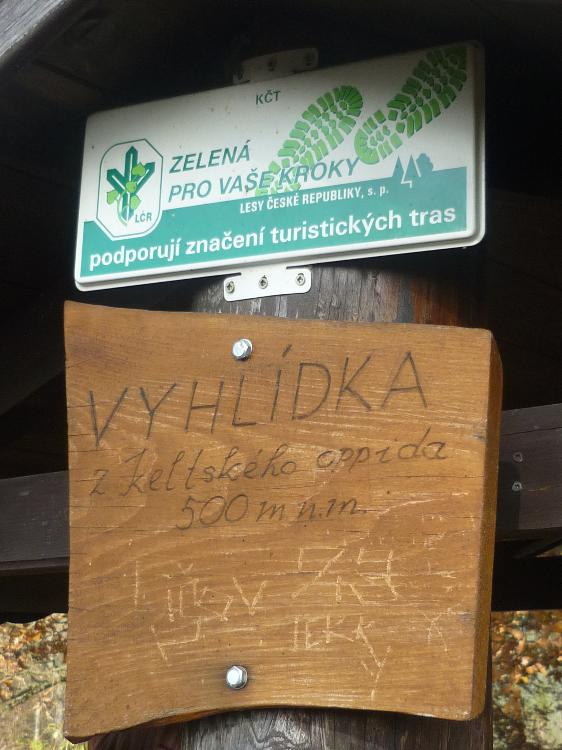 KČT
ZELENÁ
PRO VAŠE KROKY
LČR
LESY ČESKÉ REPUBLIKY, s. p.
podporují značení turistických tras
VYHLÍDKA
z keltského oppida
500 m n.m.